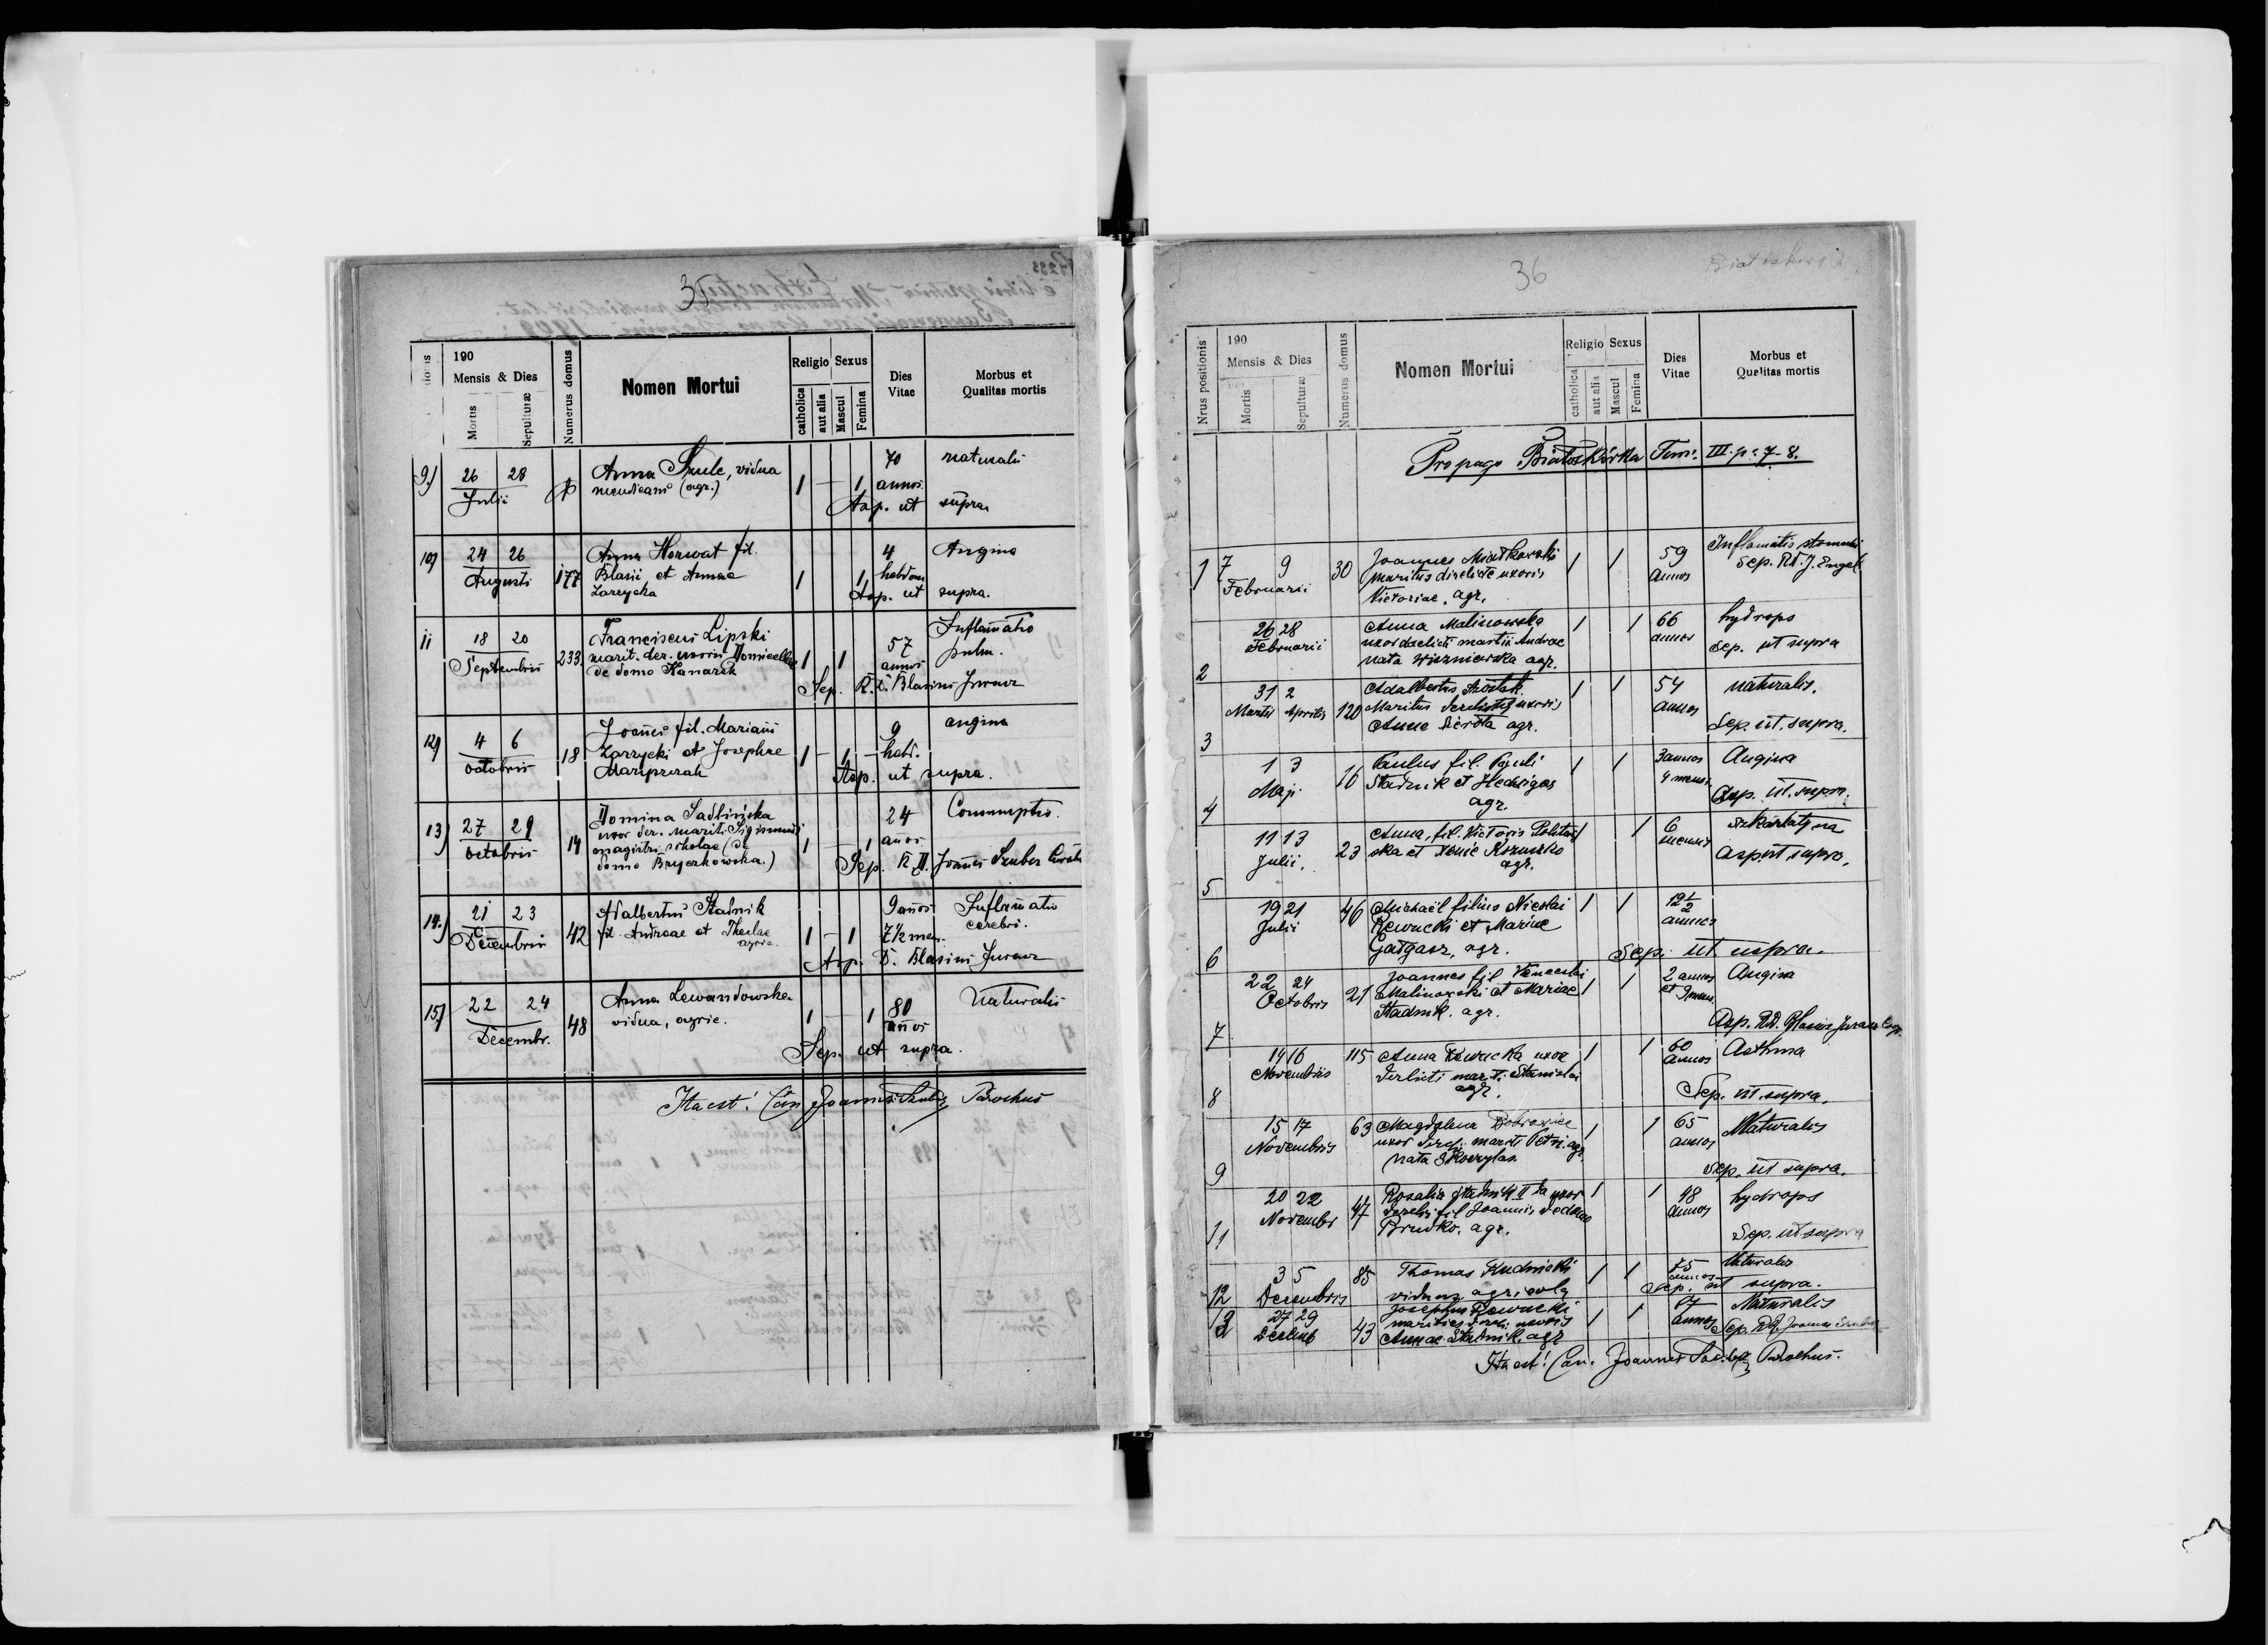 35
190
Mensis & Dies
Mortis
Sepulturæ
Numerus domus
Nomen Mortui
Religio
Sexus
catholica
aut alia
Mascul
Femina
Dies
Vitae
Morbus et
Qualitas mortis
9.) 26 28 Anna Szulc, vidua 1 — 1 70 naturalis
Julii mendicans (agr.) annos
Asp. ut supra
10) 24 26 177 Anna Horwat fil. 1 1 4 Angina
Augusti Blasii et Annae hebdom
Zarrycka Asp. ut supra.
11 18 20 233. Franciscus Lipski 1 1 57 Inflam̄atio
Septembris marit. der. uxoris Domicellae annos pulm.
de domo Kanarek Sep. R. D. Blasius Jurasz
12) 4 6 18 Joannes fil. Mariani 1 — 1 — 9 angina
octobris Zarrycki et Josephae hebd.
Asp. ut supra.
13) 27 29 14 Domina Sadlińska 1 — 1 24 Consumptio.
octobris uxor der. mariti Sigismundi annos
magistri scholae (de
domo Bryczkowska.) Sep. R. D. Joannes Szuber
14.) 21 23 42 Adalbertus Stadnik 1 — 1 9 annos Inflam̄atio
Decembris fil. Andreae et Theclae 7½ men. cerebri.
agric. Asp. D. Blasius Jurasz
15) 22 24 48 Anna Lewandowska 1 — 1 80 Naturalis
Decembr. vidua, agric. annos
Sep. ut supra.
Ita est! Can Joannes Szuber Parochus
36
Nrus positionis
190
Mensis & Dies
Mortis
Sepulturæ
Numerus domus
Nomen Mortui
Religio
Sexus
catholica
aut alia
Mascul
Femina
Dies
Vitae
Morbus et
Qualitas mortis
Propago Białoskórka Tom. III. p. 7-8.
1 7 9 30 Joannes 1 1 59 Inflamatio stomachi
Februarii maritus derelicte uxoris annos Sep. RD. J. Engel
Victoriae, agr.
2 26 28 Anna Malinowska 1 1 66 hydrops
Februarii uxor derelicti mariti Andreae annos Sep. ut supra
nata Wiszniewska agr.
3 31 2 120 Adalbertus 1 1 54 naturalis.
Martii Aprilis Maritus derelictae uxoris annos
Annae agr. Sep. ut supra.
4 1 3 16 Paulus fil. Pauli 1 1 3 annos Angina
Maji Stadnik et Hedvigae 4 mens.
agr. Asp. ut. supra.
5 11 13 23 Anna, fil. Victoris 1 6 szkarlatyna
Julii. agr. menses Asp. ut supra.
6 19 21 46 Michaël filius Nicolai 1 1 12½
Julii Rewucki et Mariae annos
agr. Sep. ut supra.
7 22 24 21 Joannes fil Venceslai 1 1 2 annos Angina
Octobris Malinowski et Mariae et 9 mens.
Stadnik. agr. Asp. RD. Blasius Jurasz
8 14 16 115 Anna Rewucka uxor 1 1 60 Asthma
Novembris derelicti marit. Stanislai annos
agr. Sep. ut supra.
9 15 17 63 Magdalena 1 1 65 Naturalis
Novembris uxor derel. mariti Petri agr. annos
nata Sep. ut supra.
11 20 22 47 Rosalia Stadnik IIda uxor 1 1 48 hydrops
Novembr derel. fil Joannis de domo annos
Brudko, agr. Sep. ut supra
12 3 5 85 Thomas Kudnicki 1 1 75 Naturalis
Decembris viduus, agricola annos Sep. ut supra.
27 29 43 Josephus Rewucki 1 1 67 Naturalis
Decemb maritus derel. uxoris annos Sep. RD. Joannes Szuber
Annae Stadnik. agr
Ita est! Can. Joannes Parochus.